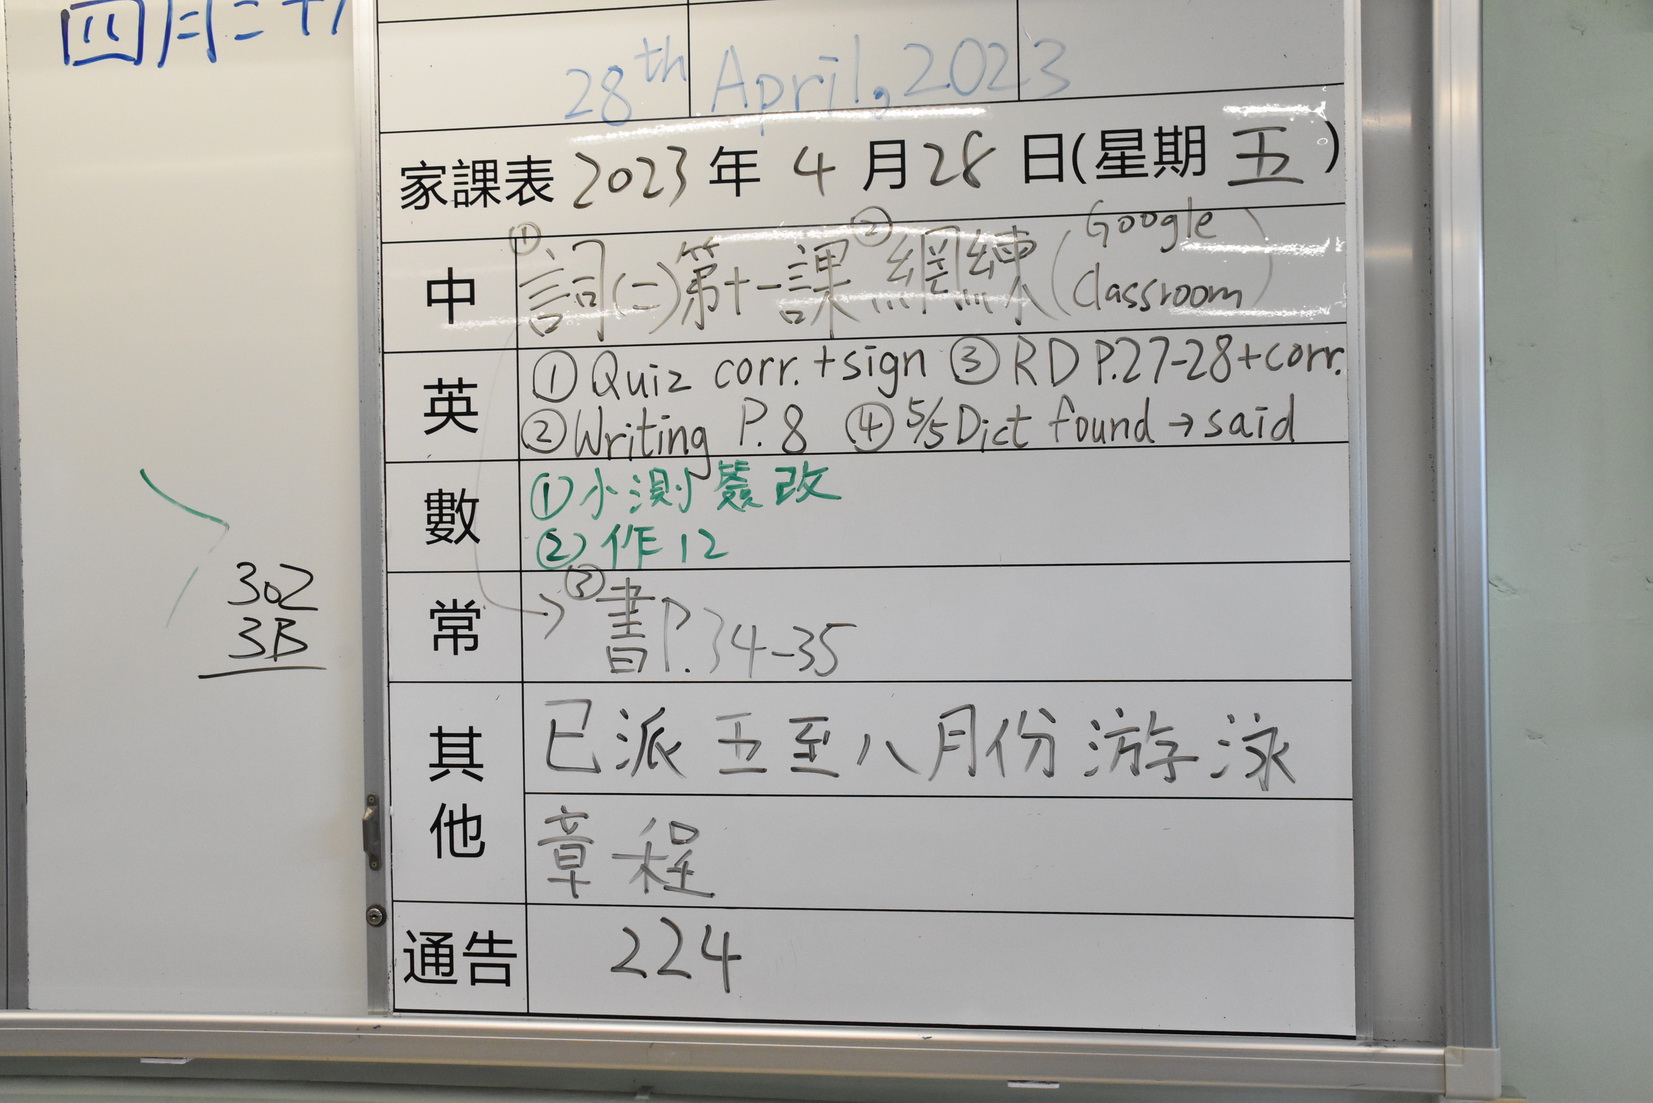 四月二十八
28th April, 2023
家課表 2023 年 4 月 28 日(星期 五)
中 ①詞(二)第十一課 ②網練(Google Classroom)
英 ①Quiz corr. +sign ③RD P.27-28+corr.
②Writing P.8 ④5/5 Dict found → said
數 ①小測簽改
②作12
常 → ③書P.34-35
其他 已派 五至八月份 游泳
章程
通告 224
302
3B